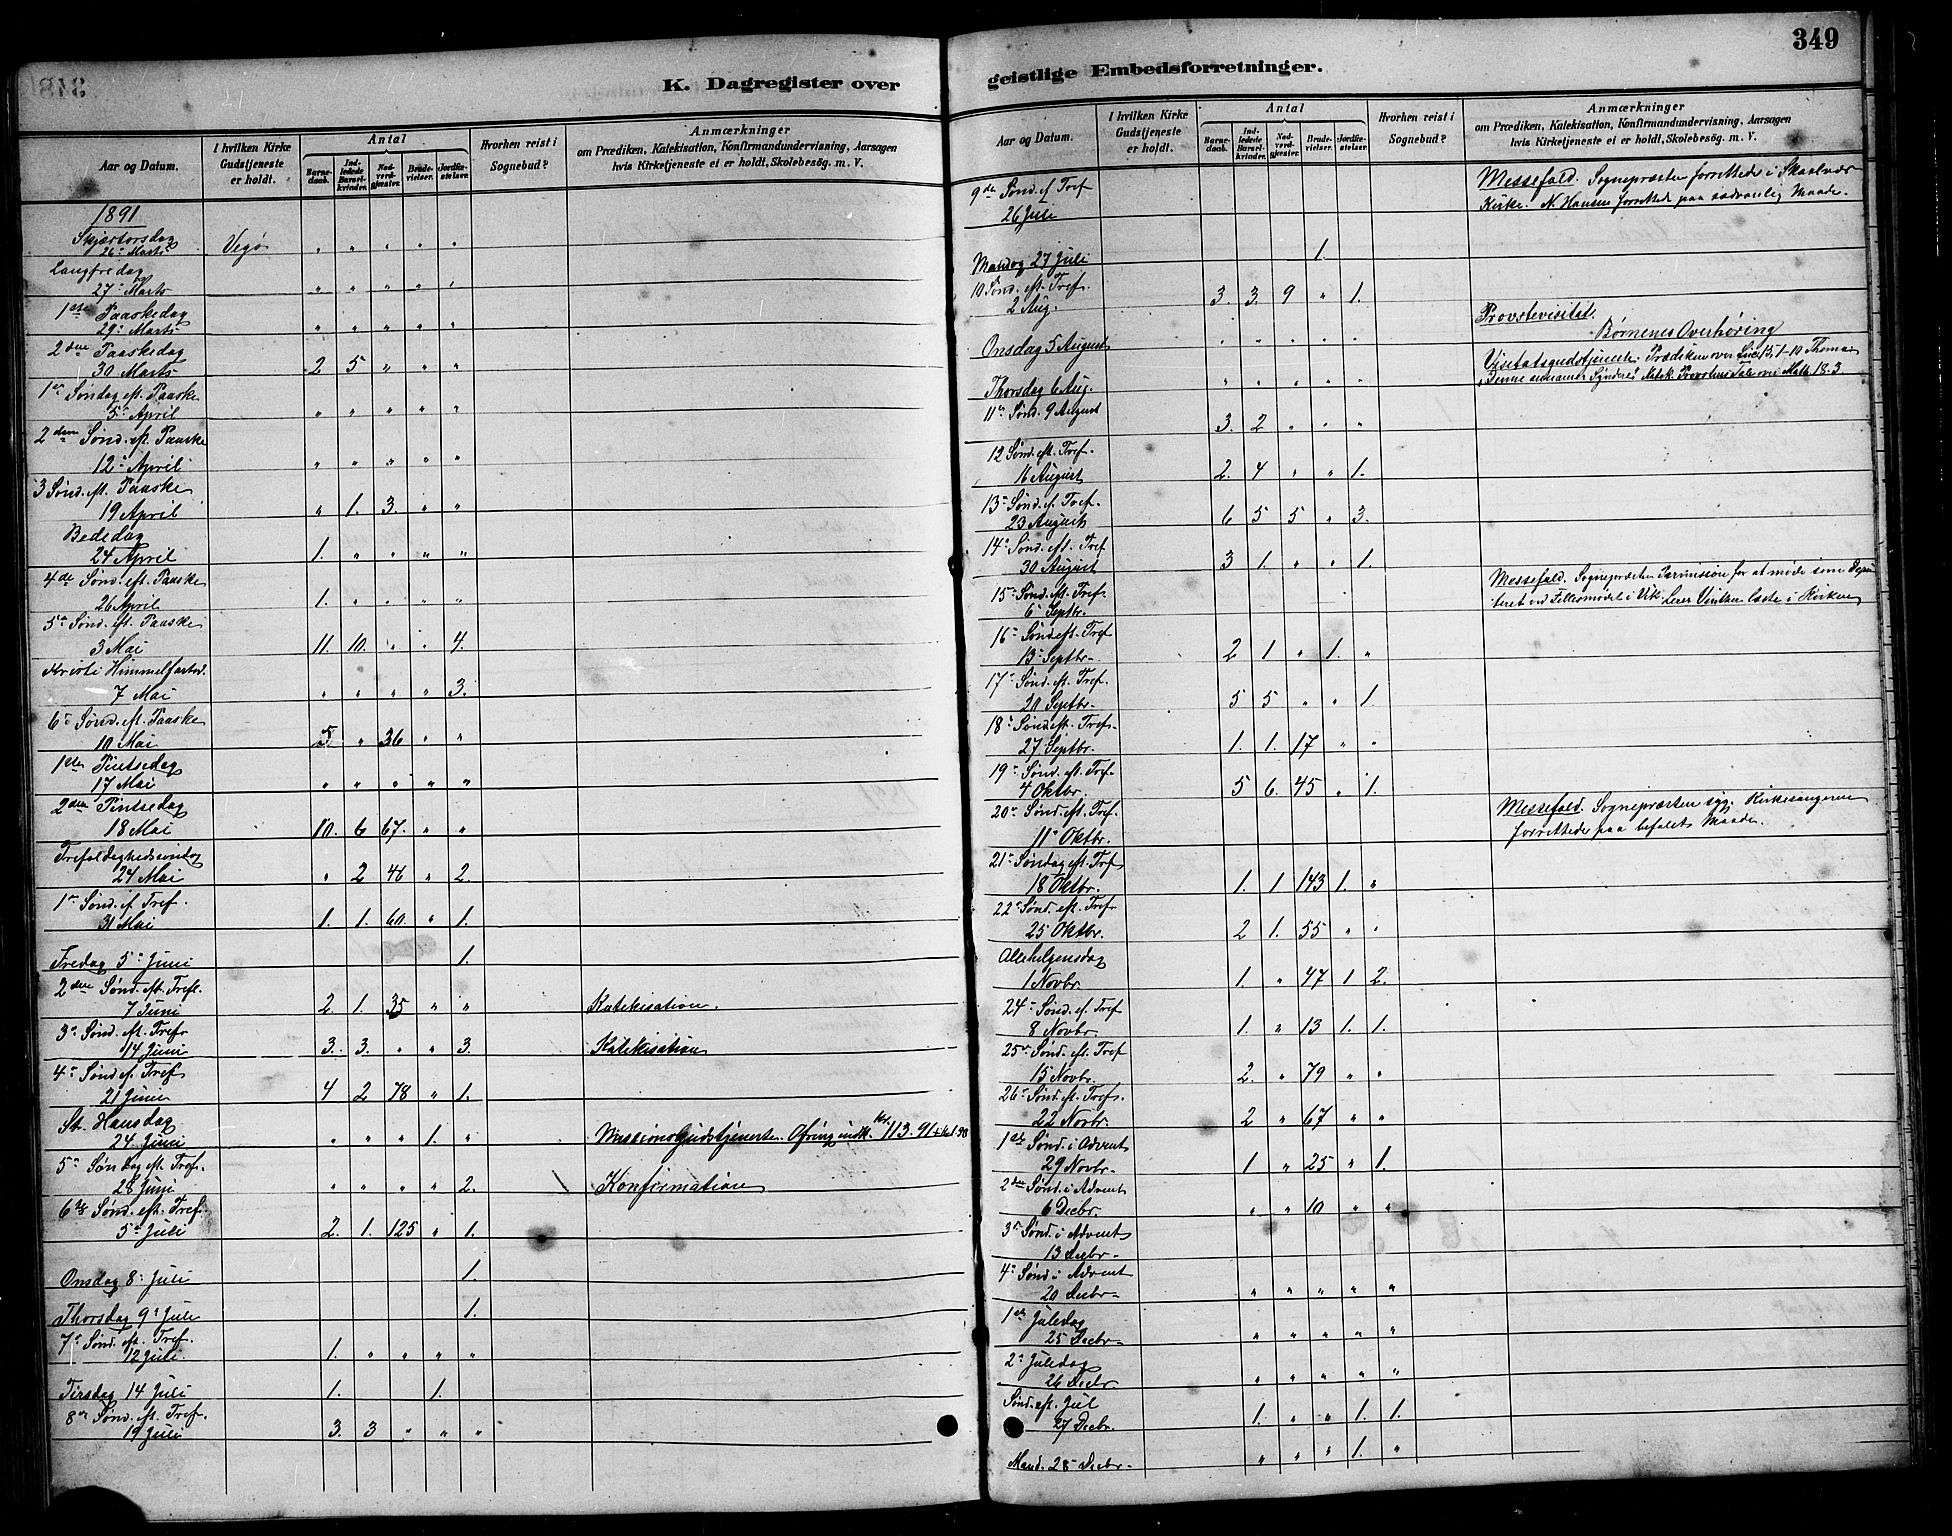 K. Dagregister over
Aar og Datum.
I hvilken Kirke Gudstjeneste er holdt.
Antal
Barnedaab.
Indledede Barselkvinder.
Nadverdgjester.
Brudevielser.
Jordfæstelser.
Hvorhen reist i Sognebud?
Anmærkninger
om Prædiken, Katekisation, Konfirmandundervisning, Aarsagen
hvis Kirketjeneste ei er holdt, Skolebesøg. m. V.
1891
Skjærtorsdag
26 Marts Vegø " " " " "
Langfredag
27 Marts " " " " "
1ste Paaskedag
29 Marts " " " " "
2den Paaskedag
30 Marts 2 5 " " "
1ste Søndag eft. Paaske
5 April " " " " "
2den Sønd. eft. Paaske
12 April " " " " "
3 Sønd. eft. Paaske
19 April " 1. 3. " "
Bededag
24 April 1. " " " "
4de Sønd. eft. Paaske
26 April 1. " " " "
5te Sønd. eft. Paaske
3 Mai 11. 10. " " 4.
Kristi Himmelfartsd.
7 Mai " " " " 3.
6te Sønd. eft. Paaske
10 Mai 5. " 36 " "
1ste Pintsedag
17 Mai " " " " "
2den Pintsedag
18 Mai 10. 6 67. " "
Trefoldighedssøndag
24 Mai " 2 46 " 2.
1ste Sønd. ef. Tref.
31 Mai 1. 1. 60. " 1.
Fredag 5 Juni 1.
2den Sønd. eft. Tref.
7 Juni 2. 1. 35 " " Katekisation.
3 Sønd. eft. Tref.
14 Juni 3. 3. " " 3. Katekisation
4 Sønd. ef. Tref
21 Juni 4 2 78 " 1.
St. Hansdag
24 Juni " " " 1. " Missionsgudstjeneste. Ofring indk. Kr. 113. 91
5 Søndag eft. Tref.
28 Juni " " " " 2. Konfirmation
6te Sønd. eft. Tref.
5 Juli 2. 1. 125 " 1.
Onsdag 8 Juli 1.
Thorsdag 9 Juli 1.
7 Sønd. eft. Tref.
12 Juli. 1. " " " "
Tirsdag 14 Juli 1. 1.
8de Sønd. eft. Tref.
19 Juli 3. 3 " " "
349
geistlige Embedsforretninger.
Aar og Datum.
I hvilken Kirke Gudstjeneste er holdt.
Antal
Barnedaab.
Indledede Barselkvinder.
Nadverdgjester.
Brudevielser.
Jordfæstelser.
Hvorhen reist i Sognebud?
Anmærkninger
om Prædiken, Katekisation, Konfirmandundervisning, Aarsagen
hvis Kirketjeneste ei er holdt, Skolebesøg. m. V.
9de Sønd. ef. Tref Messefald. Sognepræsten forrettede i Skaalvær
26 Juli Kirke. N. Hansen forrettede paa sædvanlig Maade.
Mandag 27 Juli 1.
10 Sønd. eft. Tref.
2 Aug. 3 3. 9 " 1.
Provstevisitat.
Onsdag 5 August " " " " " Børnenes Overhøring
Visitatsgudstjeneste. Prædiken over Luc. 15, 1-10
Thorsdag 6 Aug. " " " " " "Denne annamer Syndere" Provstens Tale over Math. 18. 3
11 Sønd. 9 August
3. 2 " " "
12 Sønd. eft. Tref.
16 August 2. 4 " " 1.
13 Sønd. ef. Tref.
23 August 6 5 5 " 3.
14 Sønd. eft. Tref
30 August 3 1. " " 1.
15 Sønd. eft. Tref. Messefald. Sognepræsten for at møde som Depu
6 Septbr. teret ved Fællesmødet i Vik. læste i Kirken
16 Sønd eft. Tref
13 Septbr. 2 1 " 1. "
17 Sønd. eft. Tref.
20 Septbr. 5 5 " " 1.
18 Sønd eft. Tref.
27 Septbr. 1. 1. 17 " "
19 Sønd. eft. Tref.
4 Oktbr. 5 6. 45 " 1.
20 Sønd. eft. Tref. Messefald. Sognepræsten syg. Kirkesangeren
11 Oktbr. forrettede paa befalet Maade.
21 Søndag eft. Tref
18 Oktbr. 1. 1 143 1. "
22 Sønd. eft. Tref
25 Oktbr. 2 1. 55 " "
Allehelgensdag
1 Novbr. 1. " 47 1 2.
24 Sønd. ef. Tref
8 Novbr. 1. " 13 1. 1.
25 Sønd. eft. Tref
15 Novbr. 2. " 79 " "
26 Sønd. eft. Tref.
22 Novbr. 2 " 67 " "
1ste Sønd. i Advent
29 Novbr. 1 " 25 " 1.
2den Sønd. i Advent
6 Decbr. " " 10 " "
3 Sønd. i Advent
13 Decbr.
4 Sønd. i Advent
20 Decbr. " " " " "
1ste Juledag
25 Decbr. " " " " "
2 Juledag
26 Decbr. " " " " "
Sønd. eft. Jul
27 Decbr. 1. " " 1. 1.
Mand. 28 Decbr. " " " 1. "